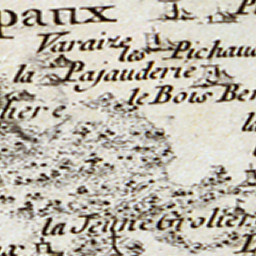 paux
Varaize
les Pichaud
la Pajauderie
le Bois Ber
liere
la
la Jeune Grolier